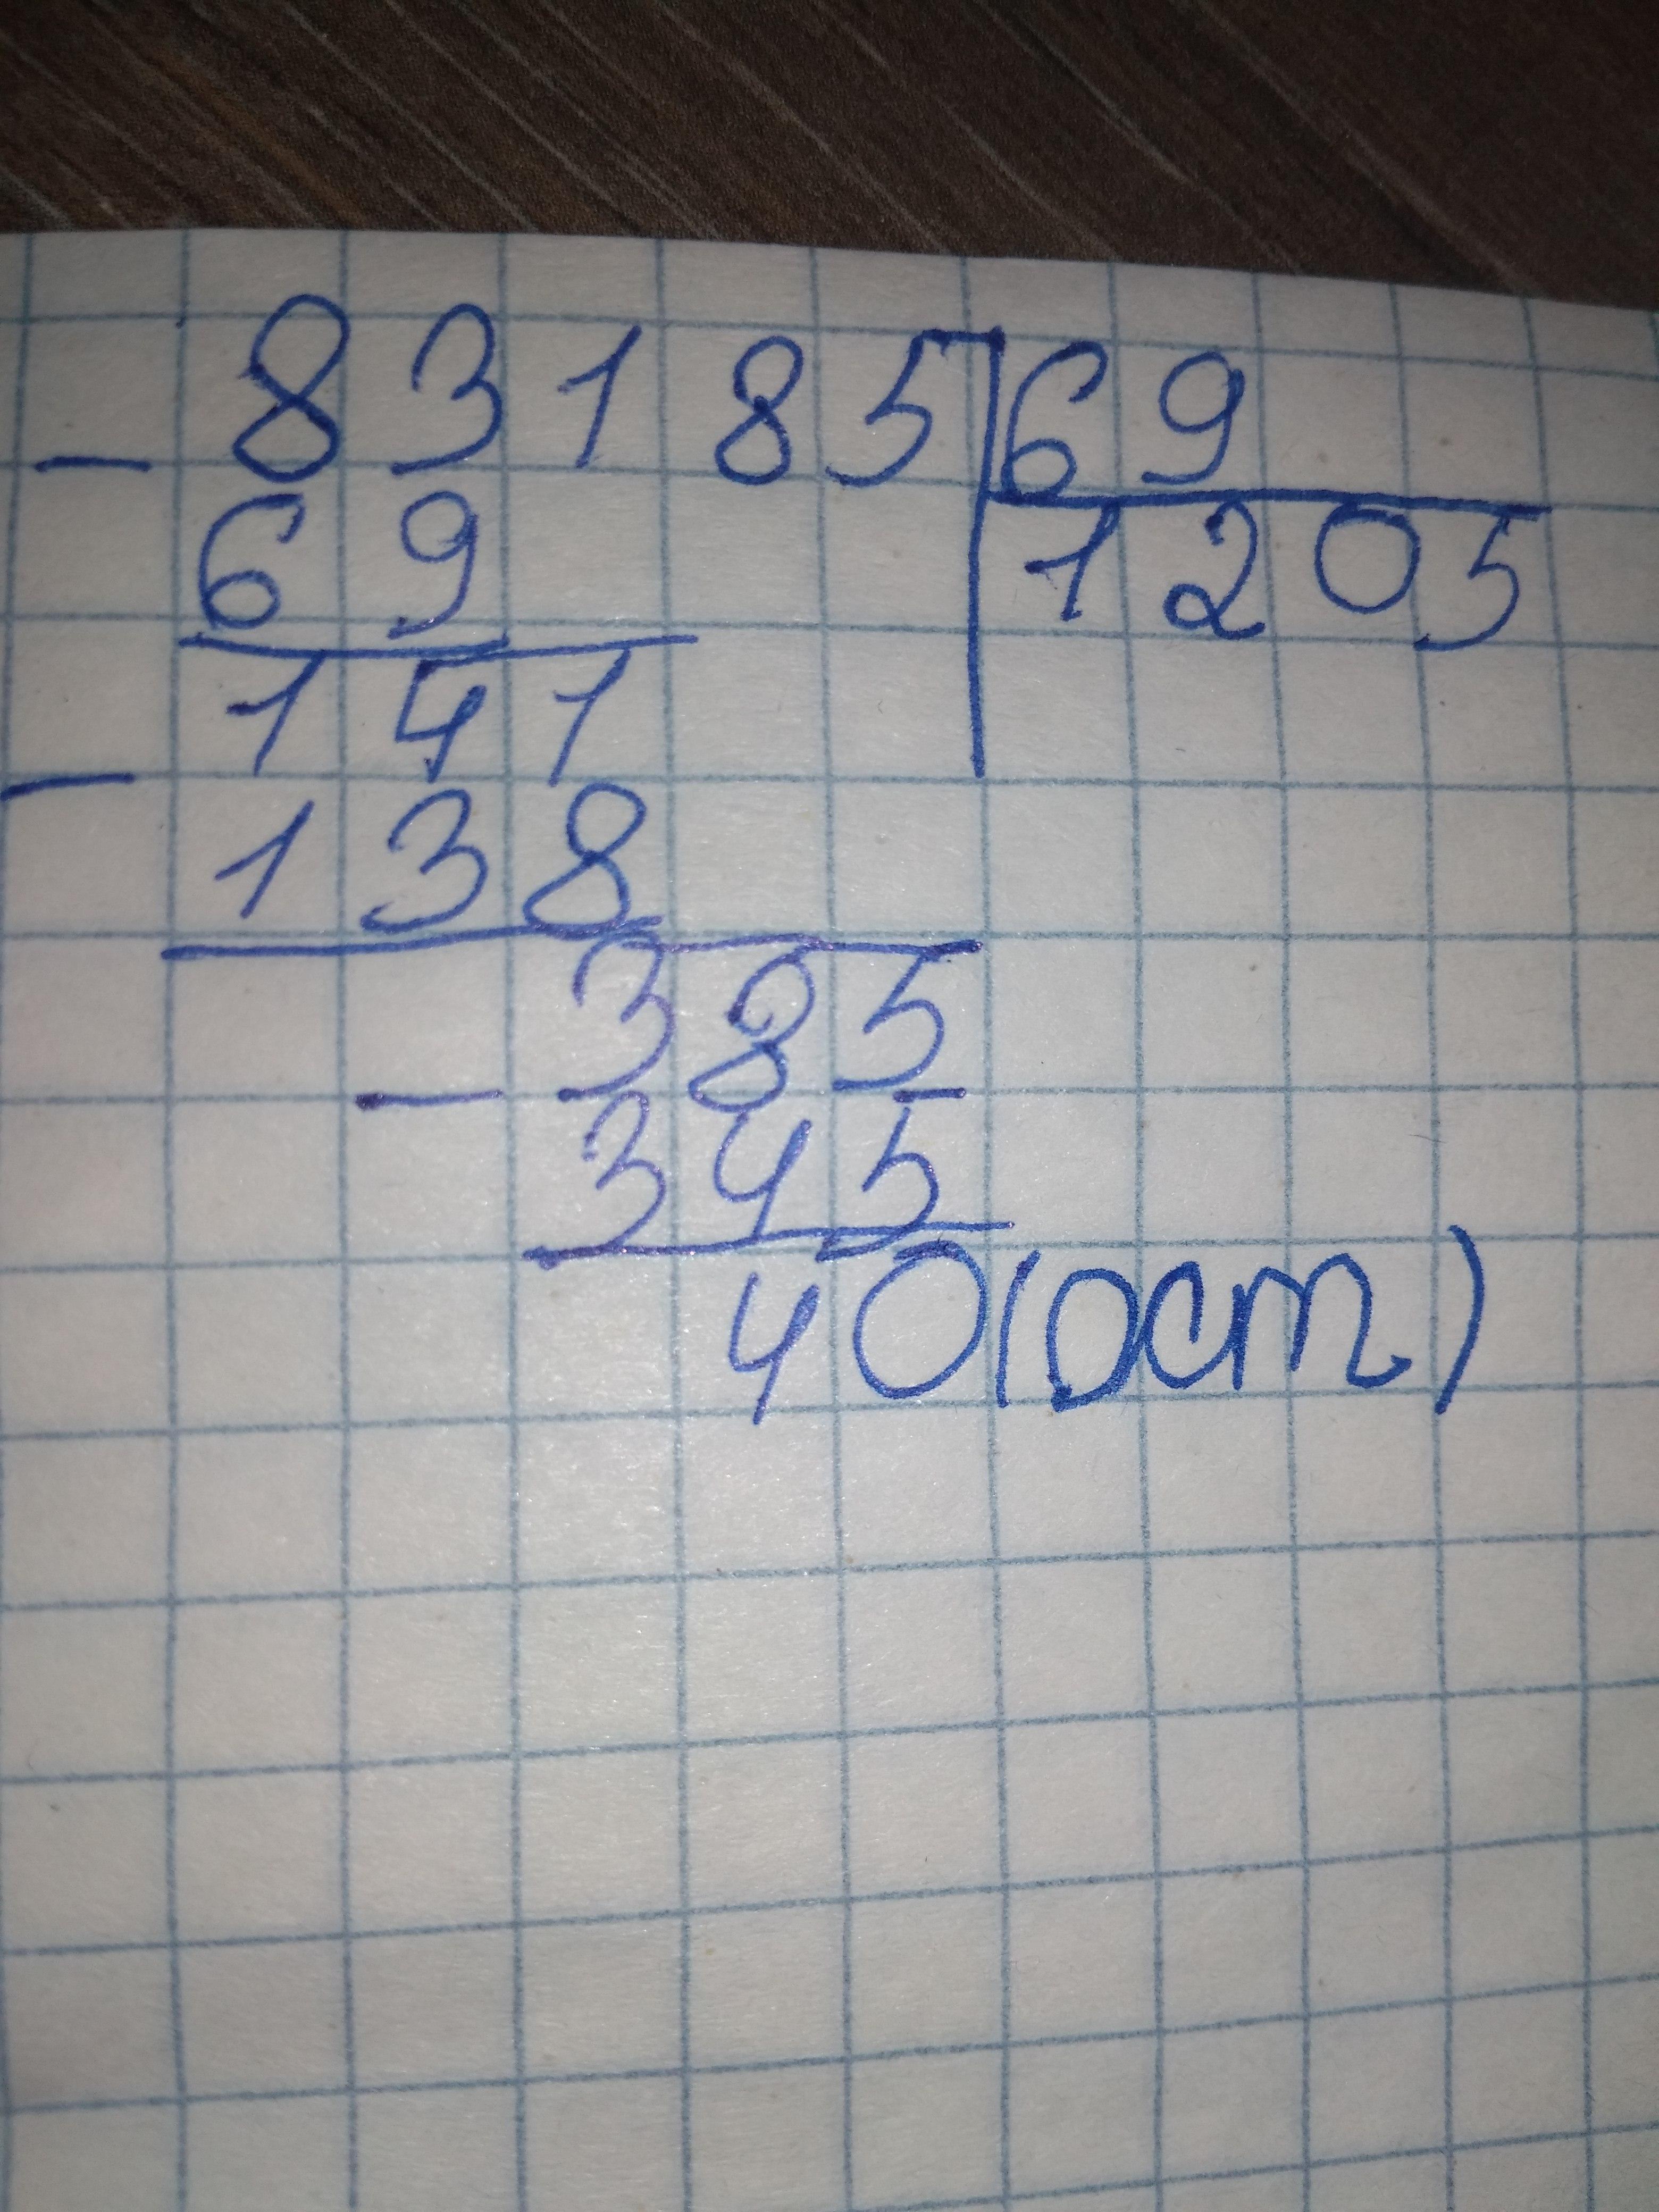 - 83185 69
69 1205
141
- 138
385
- 345
40 (ост)